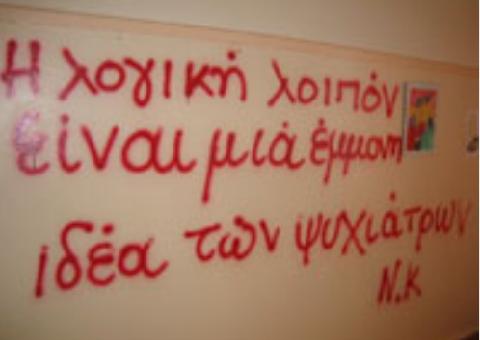 Η λογική λοιπόν
είναι μιά έμμονη
ιδέα των ψυχιάτρων
Ν.Κ